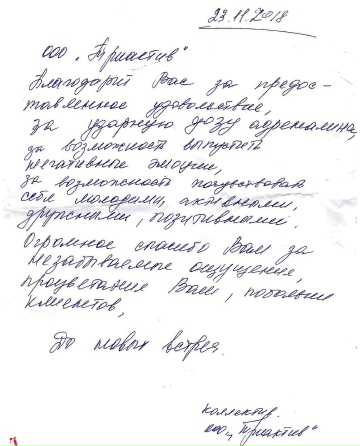 23.11.2018
ООО „Триактив"
Благодарит Вас за предос-
тавленное удовольствие,
за ударную дозу адреналина,
за возможность выпустить
негативные эмоции,
за возможность почувствовать
себя молодыми, активными,
дружными, позитивными.
Огромное спасибо Вам за
незабываемые ощущение,
процветание Вам, побольше
клиентов,
До новых встреч.
коллектив
ООО „Триактив"